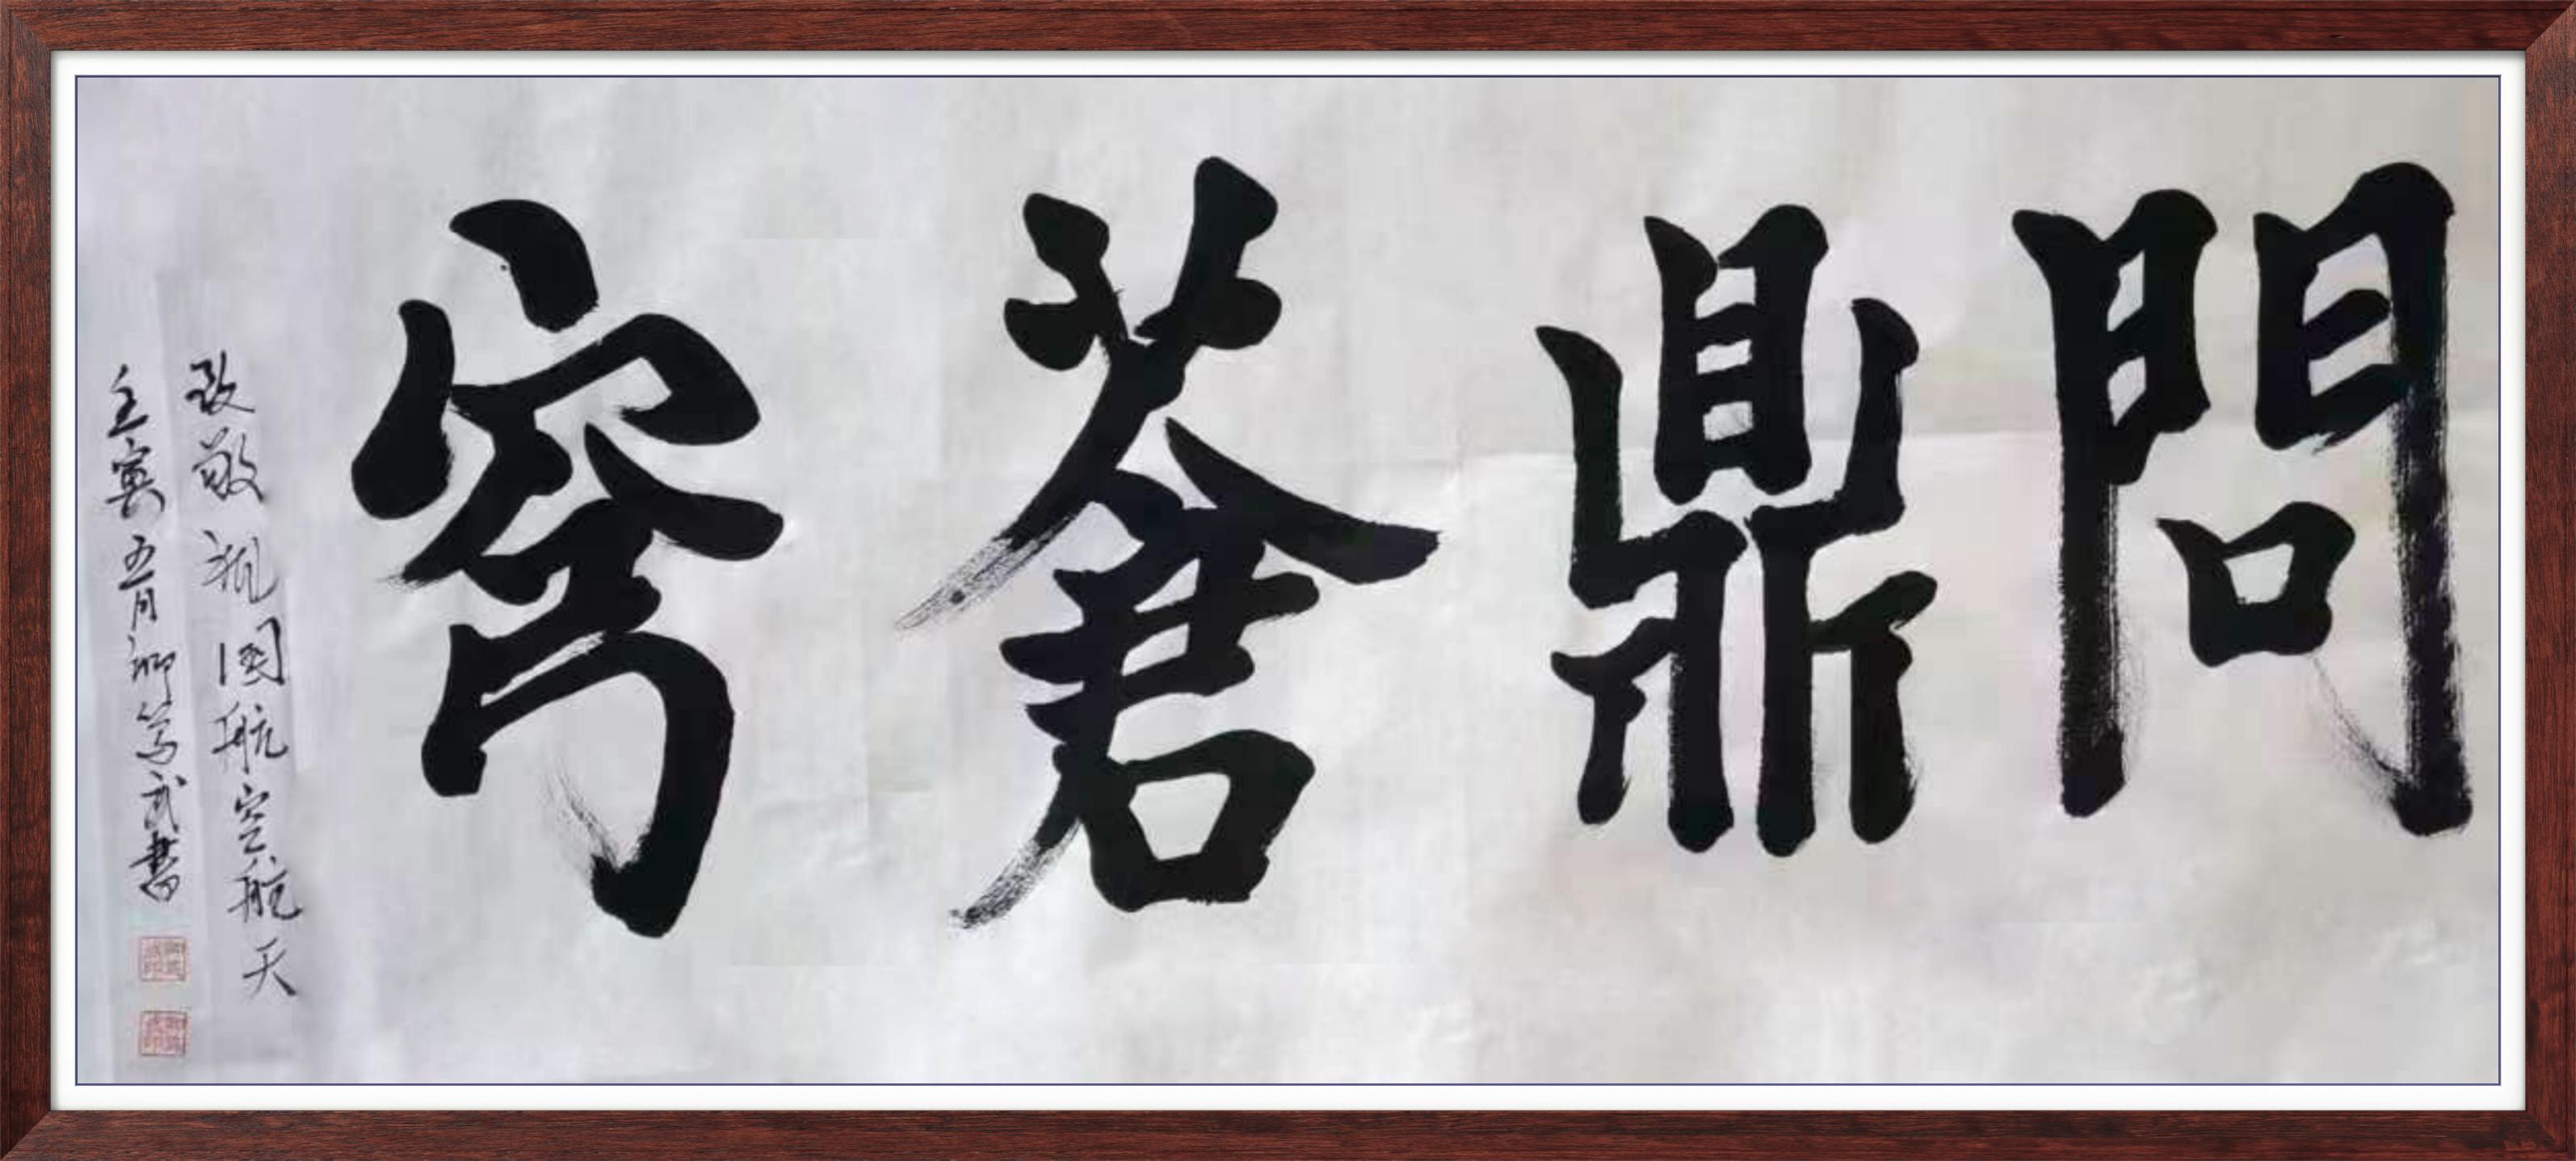 問鼎蒼穹
致敬祖国航空航天
壬寅五月卿篤武書